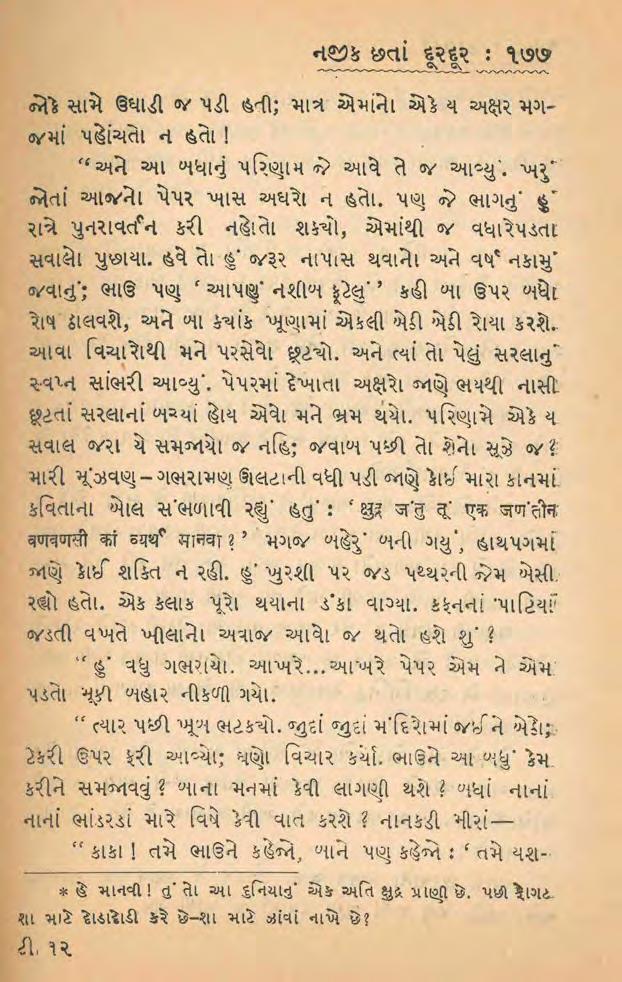 નજીક છતાં દૂરદૂર : ૧૭૭
જાેકે સામે ઉઘાડી જ પડી હતી; માત્ર એમાંનો એકે ય અક્ષર મગ-
જમાં પહોંચતો ન હતો !
“અને આ બધાનું પરિણામ જે આવે તે જ આવ્યું. ખરું
જોતાં આજનો પેપર ખાસ અઘરો ન હતો. પણ જે ભાગનું હું
રાત્રે પુનરાવર્તન કરી નહોતો શકયો, એમાંથી જ વધારેપડતા
સવાલો પુછાયા. હવે તો હું જરૂર નાપાસ થવાનો અને વર્ષ નકામું
જવાનું; ભાઉ પણ ‘ આપણું નશીબ ફૂટેલું ’ કહી બા ઉપર બધો
રોષ ઠાલવશે, અને બા ક્યાંક ખૂણામાં એકલી બેઠી બેઠી રોયા કરશે.
આવા વિચારોથી મને પરસેવો છૂટયો. અને ત્યાં તો પેલું સરલાનું
સ્વપ્ન સાંભરી આવ્યું. પેપરમાં દેખાતા અક્ષરો જાણે ભયથી નાસી
છૂટતાં સરલાનાં બચ્ચાં હોય એવો મને ભ્રમ થયો. પરિણામે એકે ય
સવાલ જરા યે સમજાયો જ નહિ; જવાબ પછી તો શેનો સૂઝે જ ?
મારી મૂંઝવણ – ગભરામણ ઊલટાની વધી પડી જાણે કોઈ મારા કાનમાં
કવિતાના બોલ સંભળાવી રહ્યું હતું : ‘ क्षुद्र जंतु तूं एक जगंतीन
वणवणसी कां व्यर्थ मानवा ? ’ મગજ બહેરું બની ગયું, હાથપગમાં
જાણે કોઈ શક્તિ ન રહી. હું ખુરશી પર જડ પથ્થરની જેમ બેસી
રહ્યો હતો. એક કલાક પૂરો થયાના ડંકા વાગ્યા. કફનનાં પાટિયાં
જડતી વખતે ખીલાનો અવાજ આવો જ થતો હશે શું ?
“ હું વધુ ગભરાયો. આખરે...આખરે પેપર એમ ને એમ
પડતો મૂકી બહાર નીકળી ગયો.
“ ત્યાર પછી ખૂબ ભટકયો. જુદાં જુદાં મંદિરોમાં જઈને બેઠો;
ટેકરી ઉપર ફરી આવ્યો; ઘણો વિચાર કર્યો. ભાઉને આ બધું કેમ
કરીને સમજાવવું ? બાના મનમાં કેવી લાગણી થશે ? બધાં નાનાં
નાનાં ભાંડરડાં મારે વિષે કેવી વાત કરશે ? નાનકડી મીરાં—
“ કાકા ! તમે ભાઉને કહેજો, બાને પણ કહેજો : ‘ તમે યશ-
* હે માનવી ! તું તો આ દુનિયાનું એક અતિ ક્ષુદ્ર પ્રાણી છે. પછી ફોગટ
શા માટે દોડાદોડી કરે છે–શા માટે ઝાંવાં નાખે છે ?
ટી. ૧૨